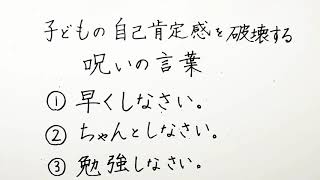 子どもの自己肯定感を破壊する
呪いの言葉
① 早くしなさい。
② ちゃんとしなさい。
③ 勉強しなさい。